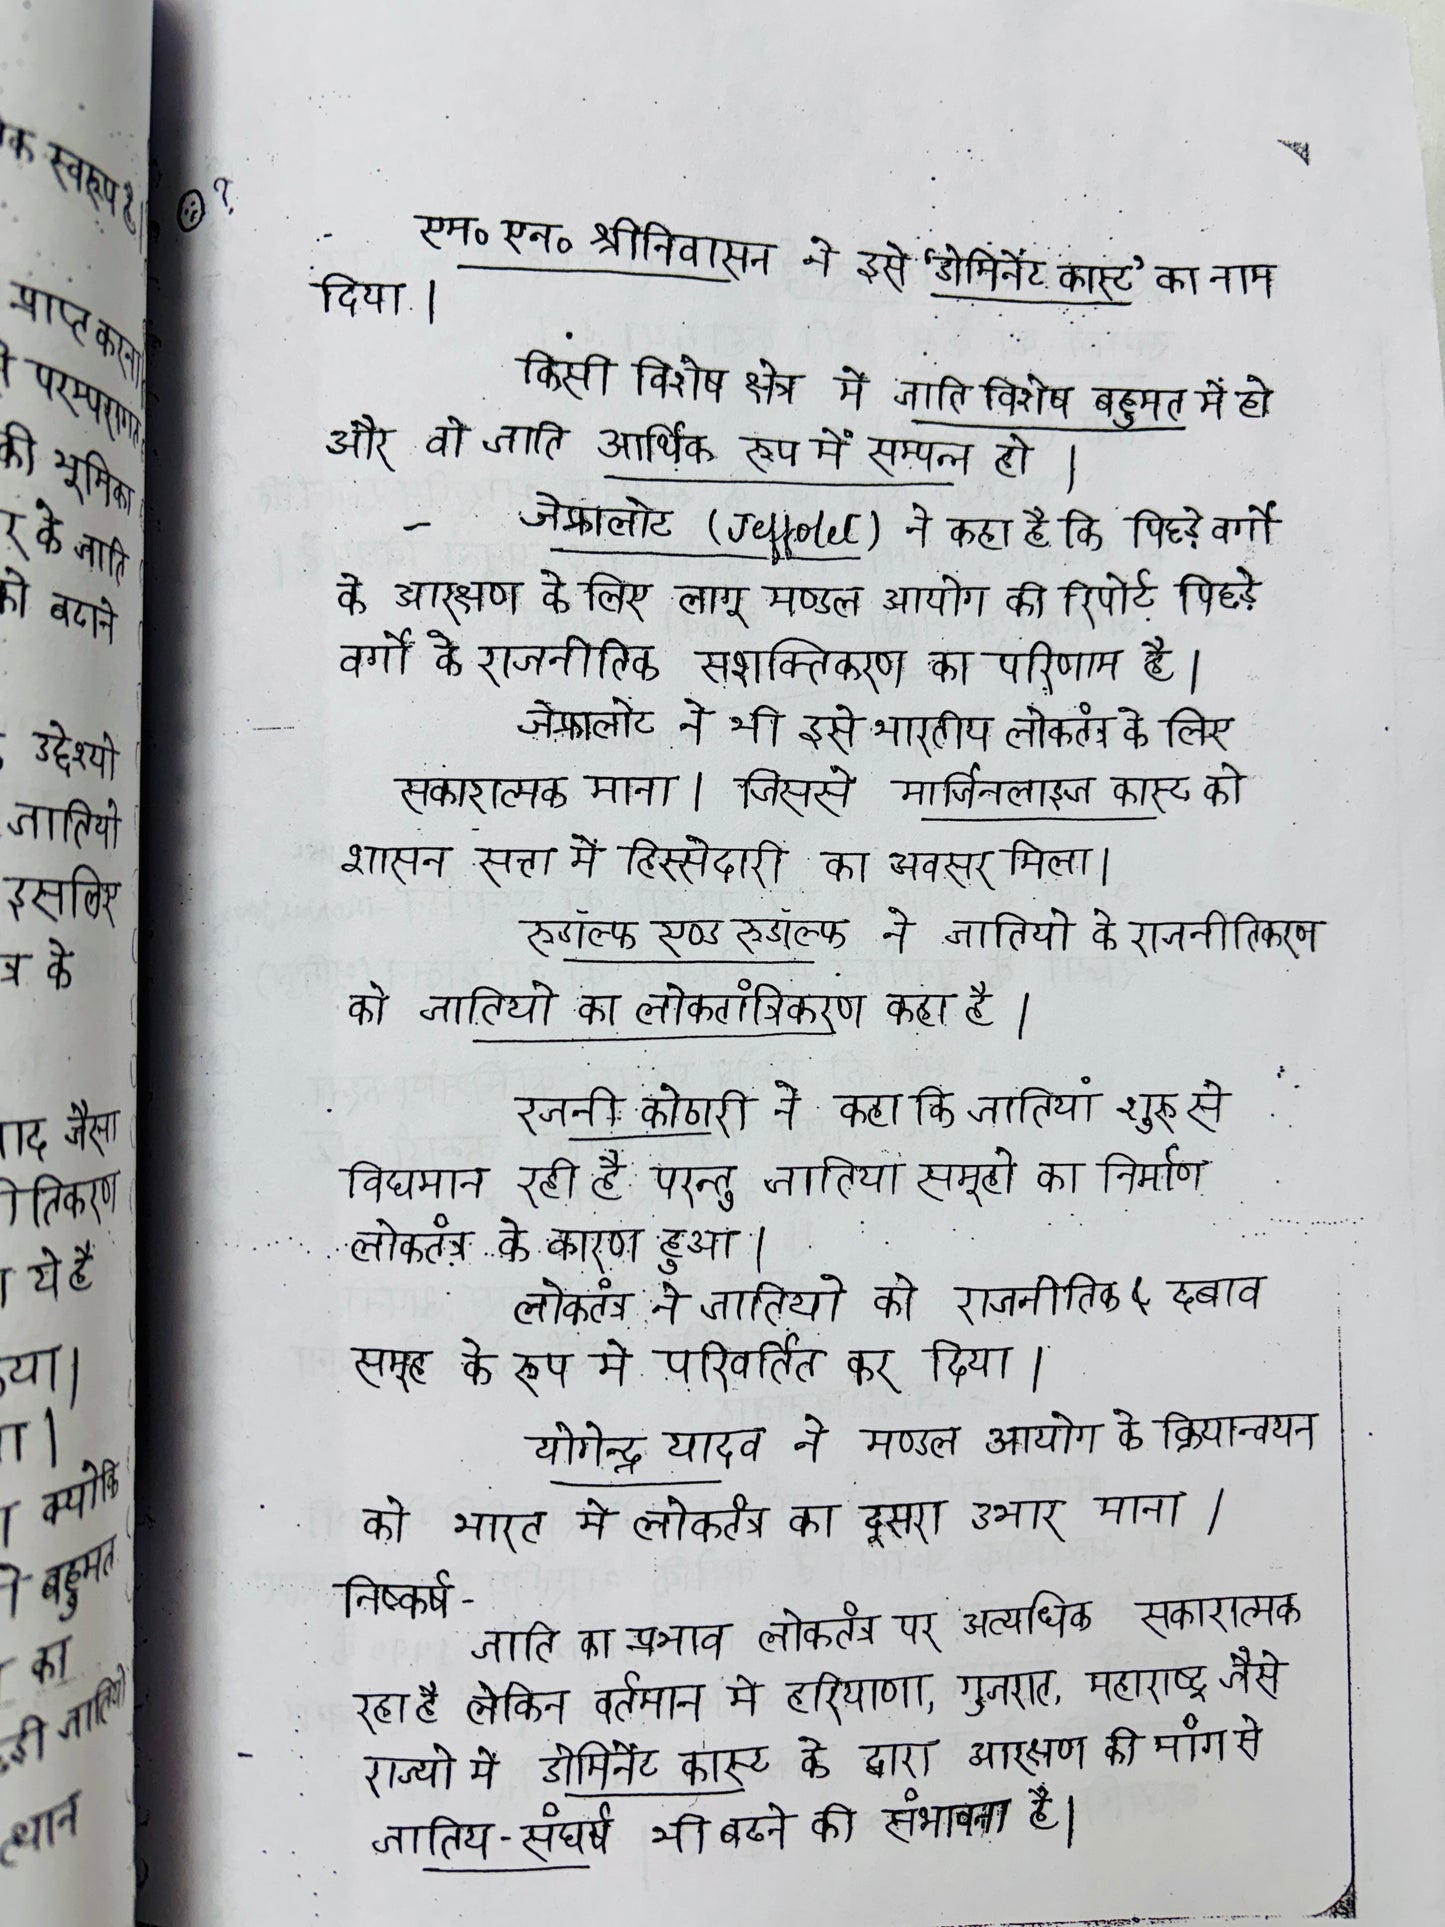 क स्वरूप है।
प्राप्त करना
परम्परागत
की भूमिका
र के जाति
को बढाने
उद्देश्यो
जातियो
इसलिए
त्र के
ाद जैसा
तिकरण
ये है
या।
ा।
क्योकि
बहुमत
का
ड़ी जातियो
थान
?
- एम० एन० श्रीनिवासन ने इसे 'डोमिनेंट कास्ट' का नाम
दिया।
किसी विशेष क्षेत्र में जाति विशेष बहुमत में हो
और वो जाति आर्थिक रूप में सम्पन्न हो।
- जेफ्रालोट (Jeffrolet) ने कहा है कि पिछड़े वर्गो
के आरक्षण के लिए लागू मण्डल आयोग की रिपोर्ट पिछड़े
वर्गो के राजनीतिक सशक्तिकरण का परिणाम है।
जेफ्रालोट ने भी इसे भारतीय लोकतंत्र के लिए
सकारात्मक माना। जिससे मार्जिनलाइज कास्ट को
शासन सत्ता में हिस्सेदारी का अवसर मिला।
रुडॉल्फ एण्ड रुडॉल्फ ने जातियो के राजनीतिकरण
को जातियो का लोकतांत्रिकरण कहा है।
रजनी कोठारी ने कहा कि जातियां शुरू से
विद्यमान रही है परन्तु जातिया समूहो का निर्माण
लोकतंत्र के कारण हुआ।
लोकतंत्र ने जातियो को राजनीतिक & दबाव
समूह के रूप मे परिवर्तित कर दिया।
योगेन्द्र यादव ने मण्डल आयोग के क्रियान्वयन
को भारत मे लोकतंत्र का दूसरा उभार माना।
निष्कर्ष-
जाति का प्रभाव लोकतंत्र पर अत्यधिक सकारात्मक
रहा है लेकिन वर्तमान मे हरियाणा, गुजरात, महाराष्ट्र जैसे
- राज्यो में डोमिनेंट कास्ट के द्वारा आरक्षण की मांग से
जातिय-संघर्ष भी बढने की संभावना है।